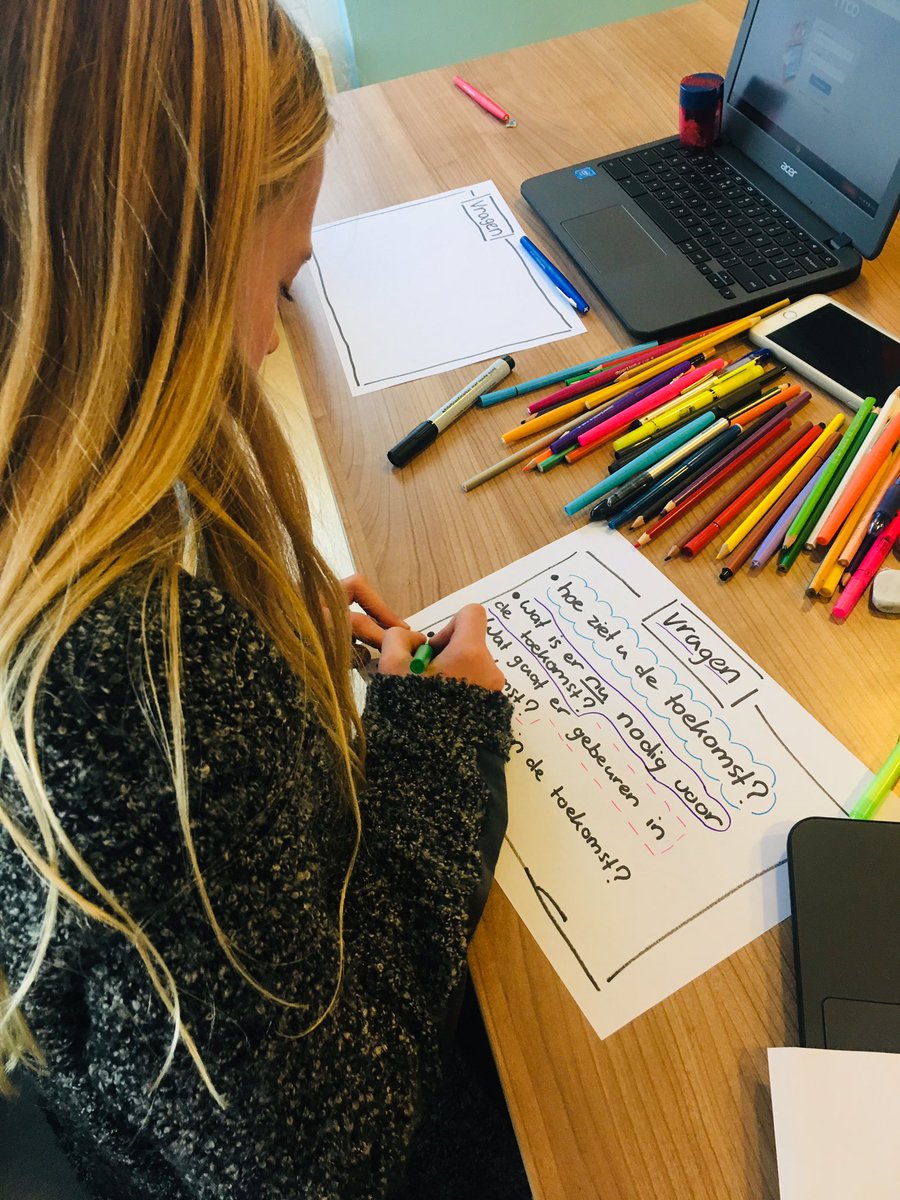 Vragen
acer
Vragen
• hoe ziet u de toekomst?
• wat is er nu nodig voor
de toekomst?
wat gaat er gebeuren in
omst?
n de toekomst?